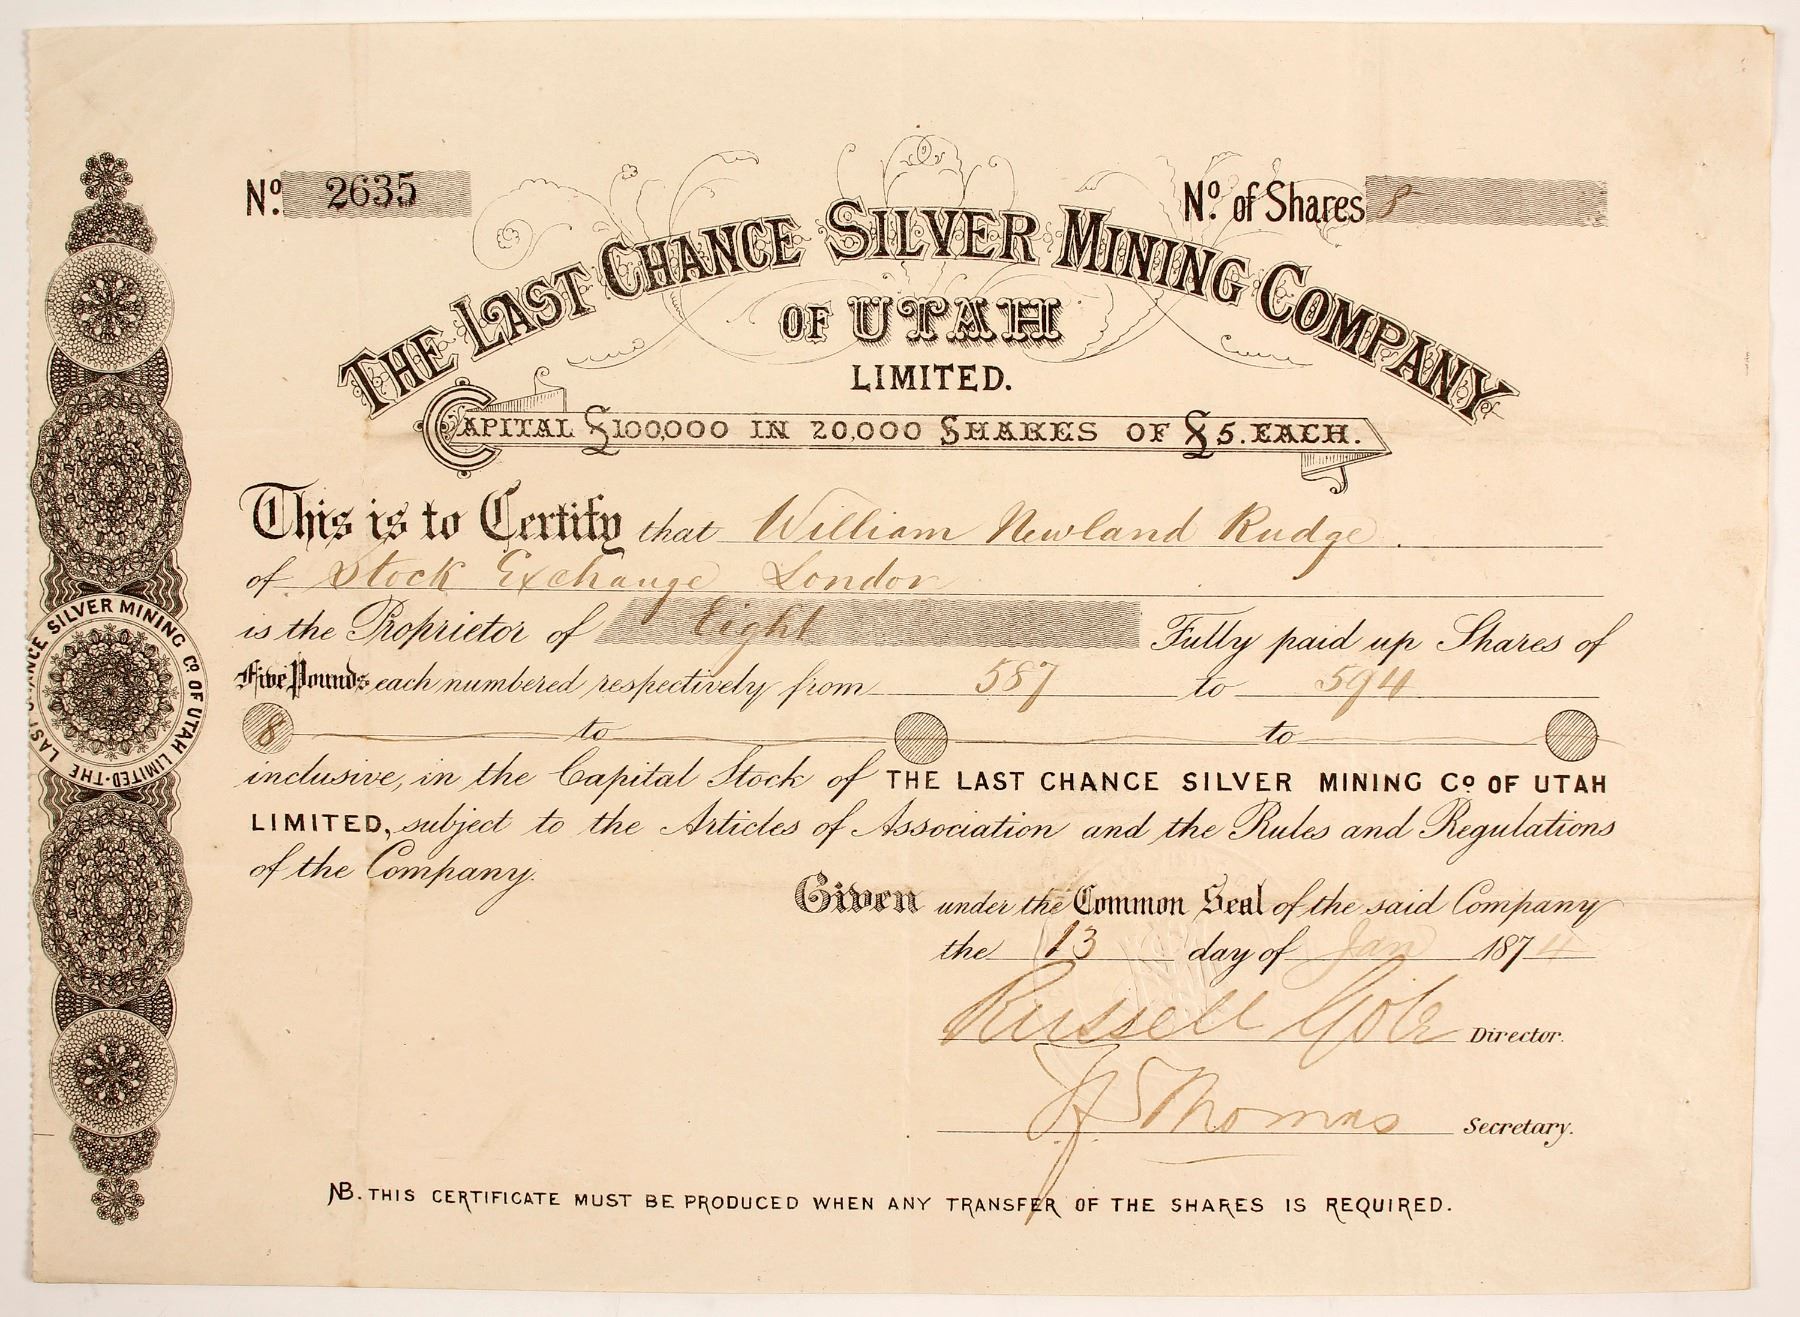 No. 2635
No. of Shares 8
THE LAST CHANCE SILVER MINING COMPANY
OF UTAH
LIMITED.
CAPITAL £100,000 IN 20,000 SHARES OF £5. EACH.
This is to Certify that William Newland Rudge.
of Stock Exchange London
is the Proprietor of Eight Fully paid up Shares of
Five Pounds each numbered respectively from 587 to 594
8 to to
inclusive, in the Capital Stock of THE LAST CHANCE SILVER MINING Co. OF UTAH
LIMITED, subject to the Articles of Association and the Rules and Regulations
of the Company.
Given under the Common Seal of the said Company
the 13 day of Jan 1874
Russell Director.
Thomas Secretary.
NB. THIS CERTIFICATE MUST BE PRODUCED WHEN ANY TRANSFER OF THE SHARES IS REQUIRED.
LAST CHANCE SILVER MINING Co. OF UTAH LIMITED · THE